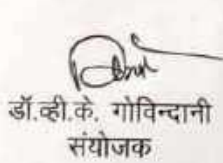 डॉ.व्ही.के. गोविन्दानी
संयोजक